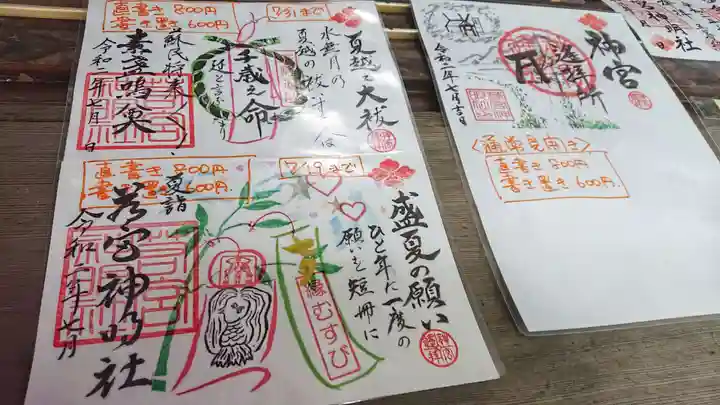 直書き 800円
書き置き 600円
7/31まで
夏越之大祓
水無月の
夏越の祓する人は
千歳之命
延と言うなり
蘇民将来
素盞嗚尊
令和二年七月 日
直書き 800円
書き置き 600円
7/19まで
盛夏の願い
ひと年に一度の
願いを短冊に
縁むすび
夏詣
若宮神明社
令和二年七月
神宮
遥拝所
令和二年七月吉日
〈通常見開き〉
直書き 800円
書き置き 600円
神明社